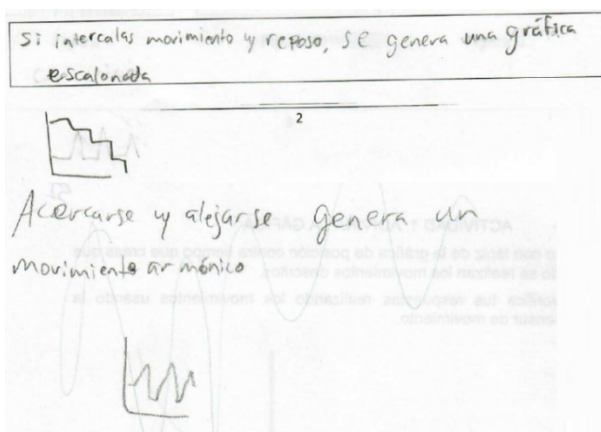 Si intercalas movimiento y reposo, se genera una gráfica
escalonada
2
Acercarse y alejarse genera un
movimiento armónico